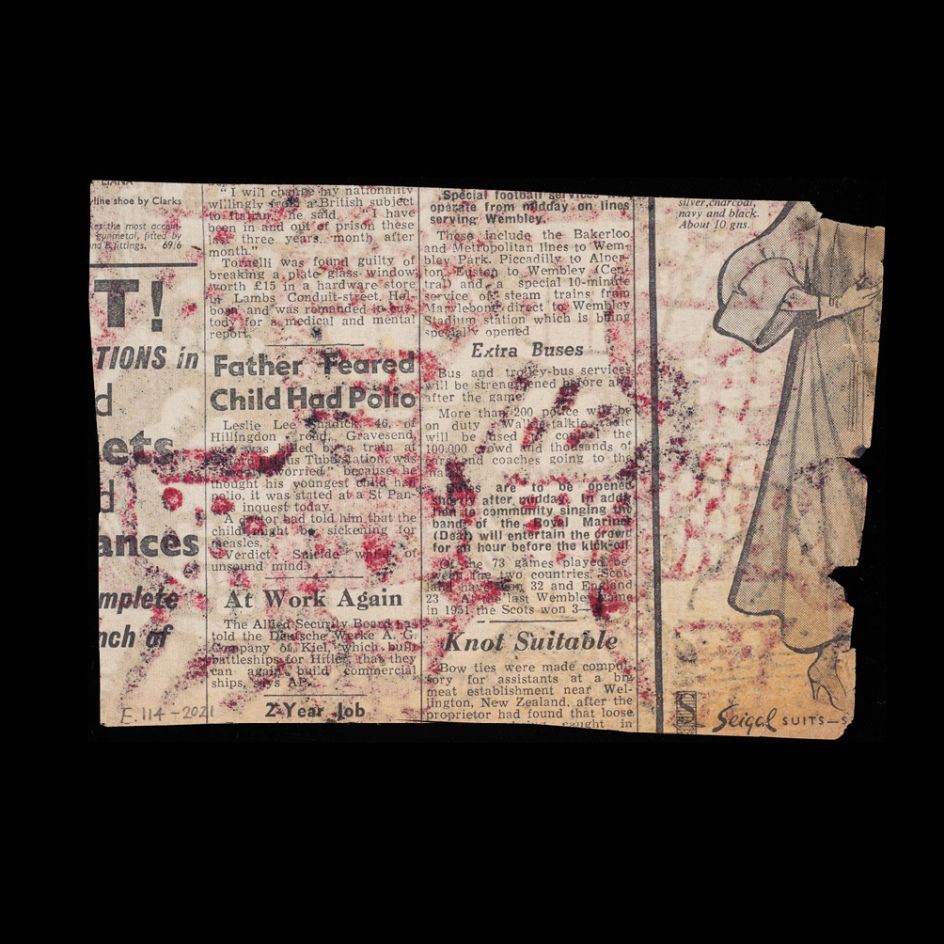 LIANA
line shoe by Clarks
es the most accom-
gunmetal, fitted by
fittings. 69/6
T!
TIONS in
d
ets
d
ances
mplete
nch of
E.114-2021
" I will change my nationality
willingly from a British subject
to Italian," he said. "I have
been in and out of prison these
last three years, month after
month."
Tornelli was found guilty of
breaking a plate glass window
worth £15 in a hardware store
in Lambs Conduit-street, Hol-
born and was remanded in cus-
tody for a medical and mental
report.
Father Feared
Child Had Polio
Leslie Lee 46, of
Hillingdon road, Gravesend,
who was killed by a train at
Tube station, was
worried" because he
thought his youngest child had
polio, it was stated at a St Pan-
inquest today.
A doctor had told him that the
child might be sickening for
measles.
Verdict: Suicide while of
unsound mind.
At Work Again
The Allied Security Board has
told the Deutsche Werke A. G.
Company of Kiel, which built
battleships for Hitler, that they
can again build commercial
ships, says AP.
2-Year Job
Special football services
operate from midday on lines
serving Wembley.
These include the Bakerloo
and Metropolitan lines to Wem-
bley Park, Piccadilly to Alper-
ton, Euston to Wembley (Cen-
tral) and a special 10-minute
service of steam trains from
Marylebone direct to Wembley
Stadium station which is being
specially opened
Extra Buses
Bus and trolley-bus services
will be strengthened before and
after the game.
More than 200 police will be
on duty. Walkie-talkie radio
will be used to control the
100,000 crowd and thousands of
cars and coaches going to the
are to be opened
shortly after midday. In addi-
tion to community singing the
band of the Royal Marines
(Deal) will entertain the crowd
for an hour before the kick-off.
Of the 73 games played be-
tween the two countries, Scot-
land have won 32 and England
23. At the last Wembley game
in 1951 the Scots won 3—
Knot Suitable
Bow ties were made compul-
sory for assistants at a big
meat establishment near Wel-
lington, New Zealand, after the
proprietor had found that loose
caught in
silver, charcoal,
navy and black.
About 10 gns.
S
Seigal SUITS—S